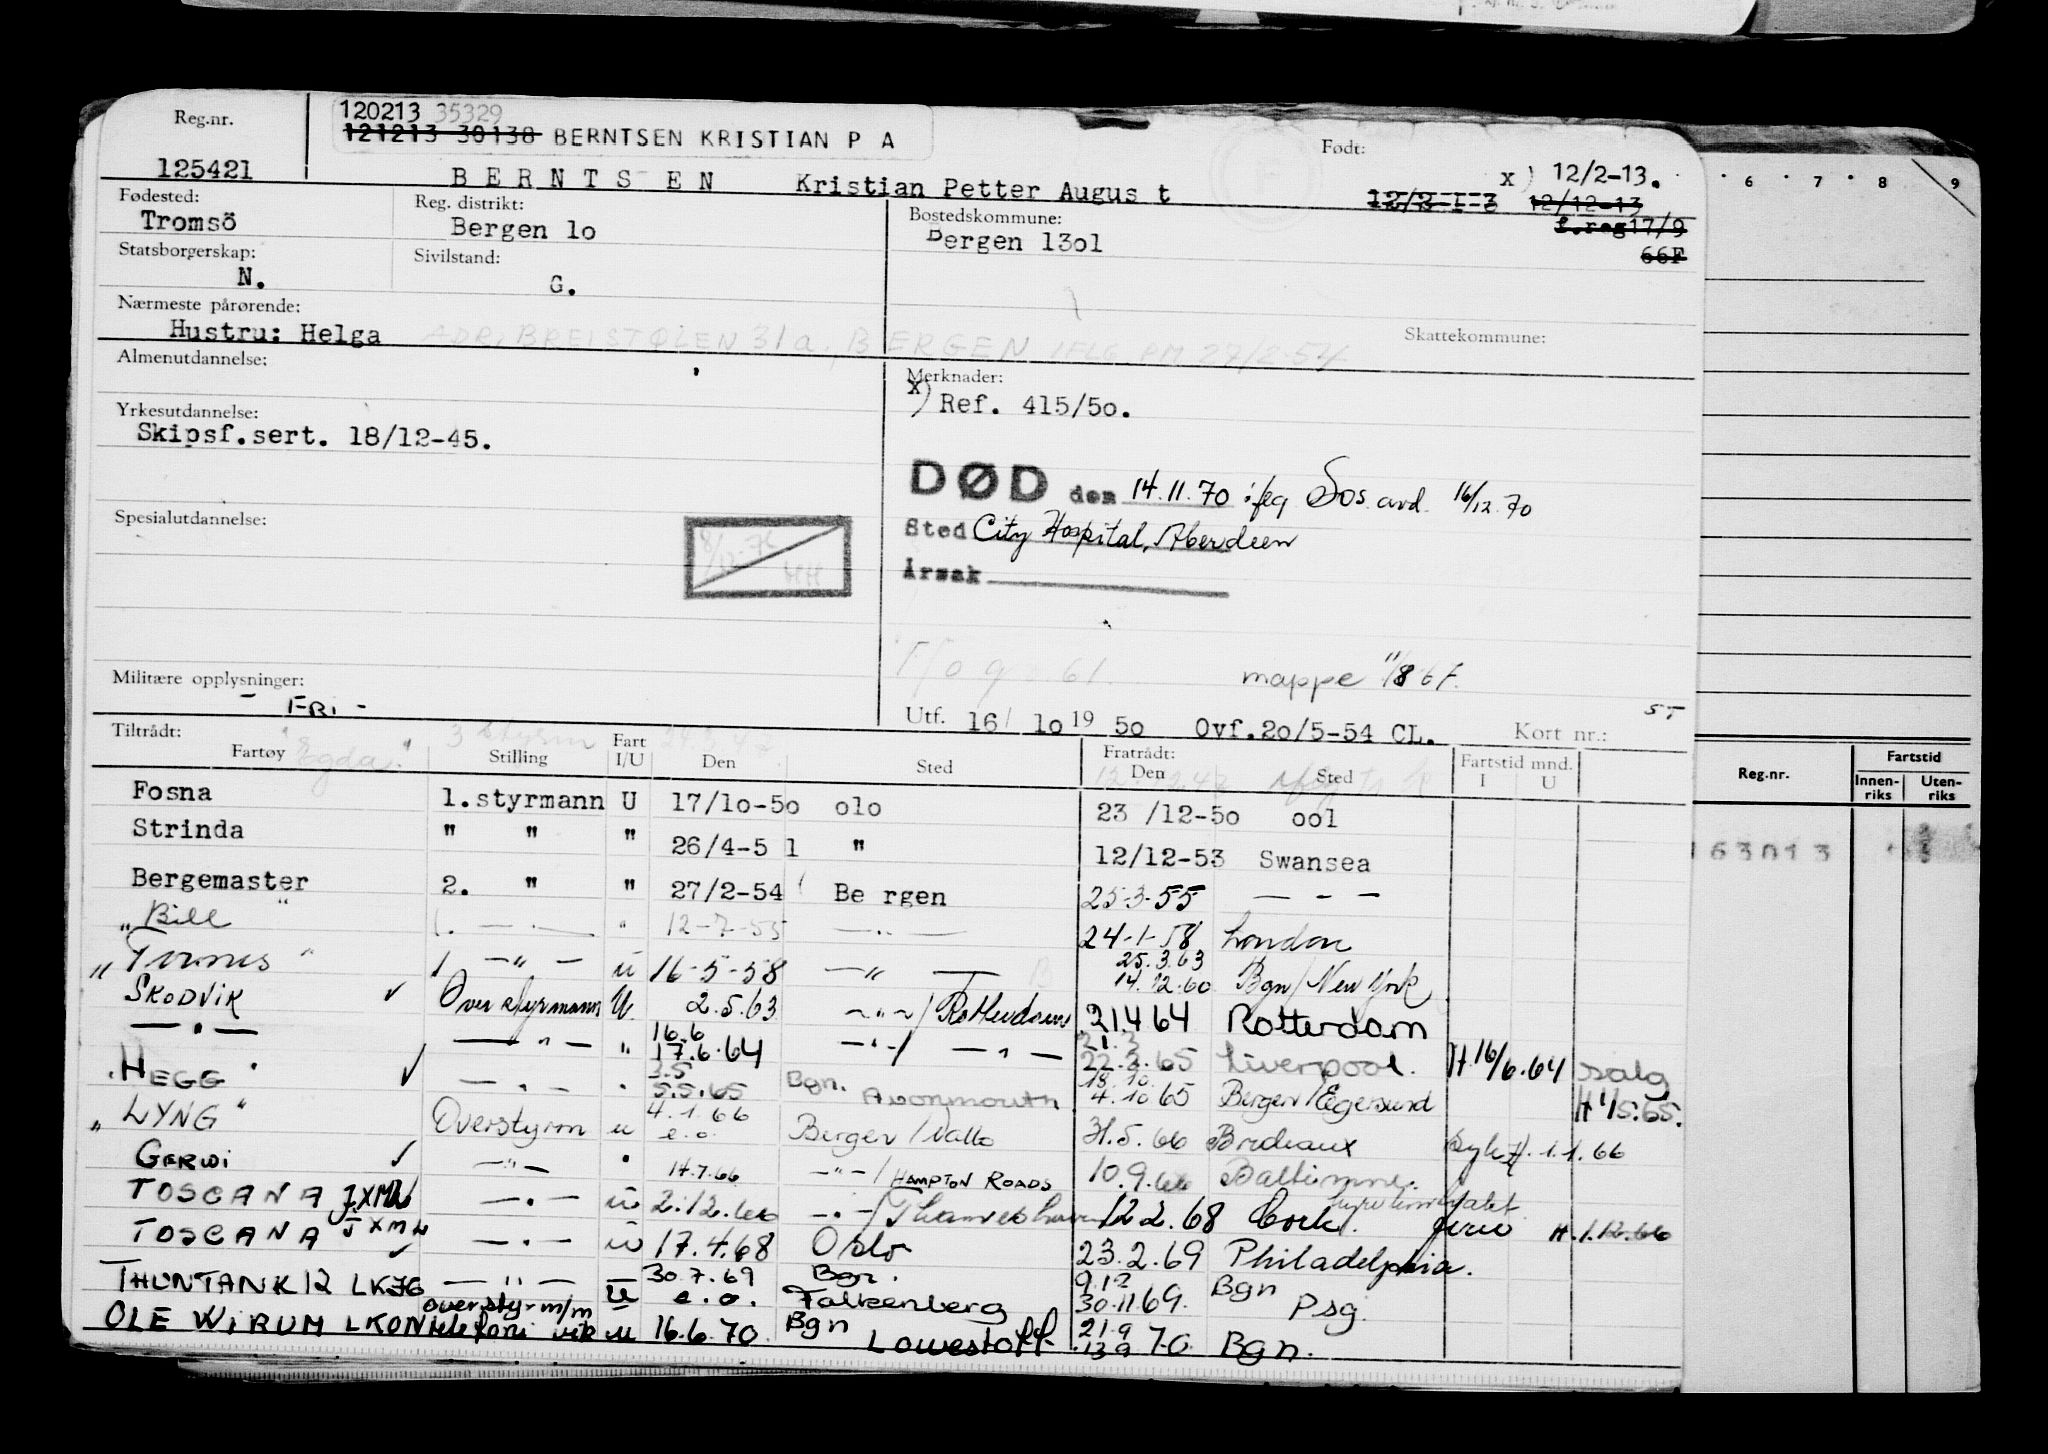 Reg.nr.
120213 35329
121213 30138 BERNTSEN KRISTIAN P A
Født:
125421
BERNTSEN Kristian Petter Augus t
x) 12/2-13.
12/2-1-3 12/12-13
f.reg17/9
66F
Fødested:
Tromsö
Reg. distrikt:
Bergen lo
Bostedskommune:
Bergen 13ol
Statsborgerskap:
N.
Sivilstand:
G.
Nærmeste pårørende:
Hustru: Helga ADR, BREISTØLEN 31a, BERGEN IFLG. PM 27/2-54
Skattekommune:
Almenutdannelse:
Merknader:
x) Ref. 415/5o.
Yrkesutdannelse:
Skipsf.sert. 18/12-45.
DØD den 14.11.70 iflg Sos. avd. 16/12.70
Sted City Hospital, Aberdeen
Årsak
Spesialutdannelse:
mappe 11/8 67.
Militære opplysninger:
- FRI -
Utf. 16/ 1o 19 5o Ovf.2o/5-54 CL. Kort nr.:
Tiltrådt: Fratrådt:
Fartøy Stilling Fart I/U Den Sted Den Sted Fartstid mnd. I U
"Egda" 3 styrm
Fosna 1.styrmann U 17/1o-5o olo 23 /12-5o ool
Strinda " " " 26/4-5 1 " 12/12-53 Swansea
Bergemaster 2. " " 27/2-54 Be rgen 25-3-55 — - —
"Bill" 1. — " — " 12-7-55 — " — 24-1-58 London
1 — " — u 16-5-58 — " — 25.3.63 14.12.60 Bgn/New York
SKODVIK ✓ Overstyrmann U. 2.5.63 — " —/Rotterdam 21.4 64 Rotterdam
— " — — " — " 16.6 17.6.64 — " —/ — " — 21.3 22.2.65 Liverpool. H.16/6.64 salg
"HEGG" ✓ — " — " 3.5 5.5.65 Bgn. Avonmouth 18.10. 4.10 65 Bergen/Egersund H 1/5.65.
"LYNG" Overstyrm u 4.1.66 e.o. Bergen/Vallo 31.5.66 Bordeaux Syk H. 1.1.66
GERWI ✓ — " — " 14.7.66 — " —/HAMPTON ROADS 10.9.66 Baltimore.
TOSCANA JXMW — " — u 2.12.66 — " —/Thameshaven 12 2.68 Cork. H.1.12.66
TOSCANA JXMW ✓ — " — u 17.4.68 Oslo 23.2.69 Philadelphia.
THUNTANK 12 LKJG — " — 30.7.69 Bgn. 9.12 Bgn
U e.o. Falkenberg 30.11.69. Psg.
OLE WIRUM LKON overstyrm/m telefoni vik u 16.6.70 Bgn Lowestoft 21.9 13.9 70 Bgn.
6 7 8 9
Reg.nr.
Fartstid
Innen-riks Uten-riks
163013